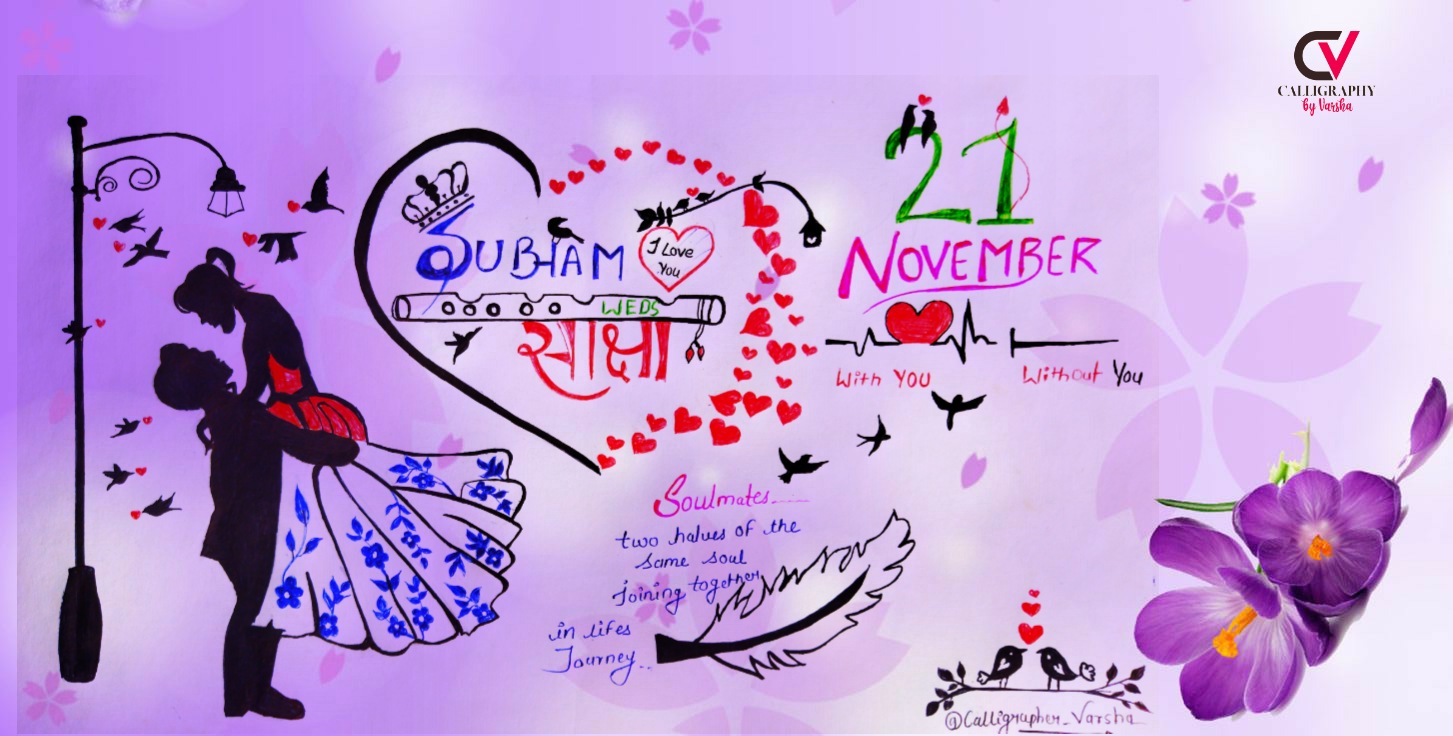 CV
CALLIGRAPHY
by Varsha
21
NOVEMBER
SUBHAM
I Love
You
WEDS
साक्षी
With YOU
Without You
Soulmates.....
two halves of the
same soul
joining together
in lifes
Journey..
@Calligrapher_Varsha